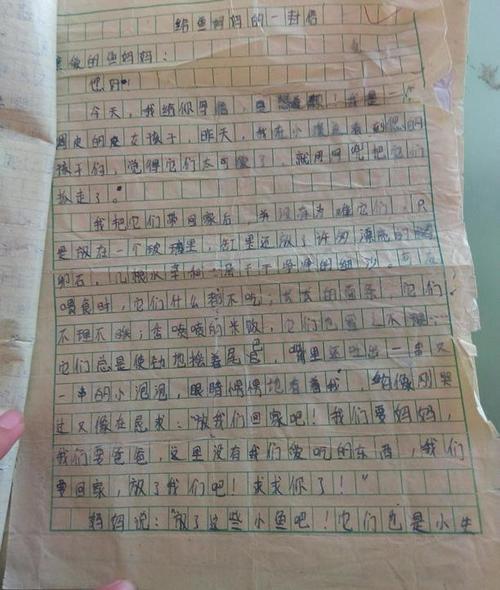 给鱼妈妈的一封信
亲爱的鱼妈妈：
您好！
今天，我给你写信，是想
调皮的女孩子，昨天，我在小溪边看到您的
孩子们，觉得它们太可爱了，就用网兜把它们
抓走了。
我把它们带回家后，并没有为难它们，只
是放在一个玻璃里，缸里还放了许多漂亮的
卵石，几根水草和
喂食时，它们什么都不吃；长长的面条，它们
不理不睬；香喷喷的米饭，它们也
它们总是使劲地摇着尾巴，嘴里还吐出一串又
一串的小泡泡，眼睛偶偶地看着我，的像刚哭
过又像在哀求：“放我们回家吧！我们要妈妈，
我们要爸爸，这里没有我们爱吃的东西，我们
要回家，放了我们吧！求求你了！”
妈妈说：“放了这些小鱼吧！它们也是小生